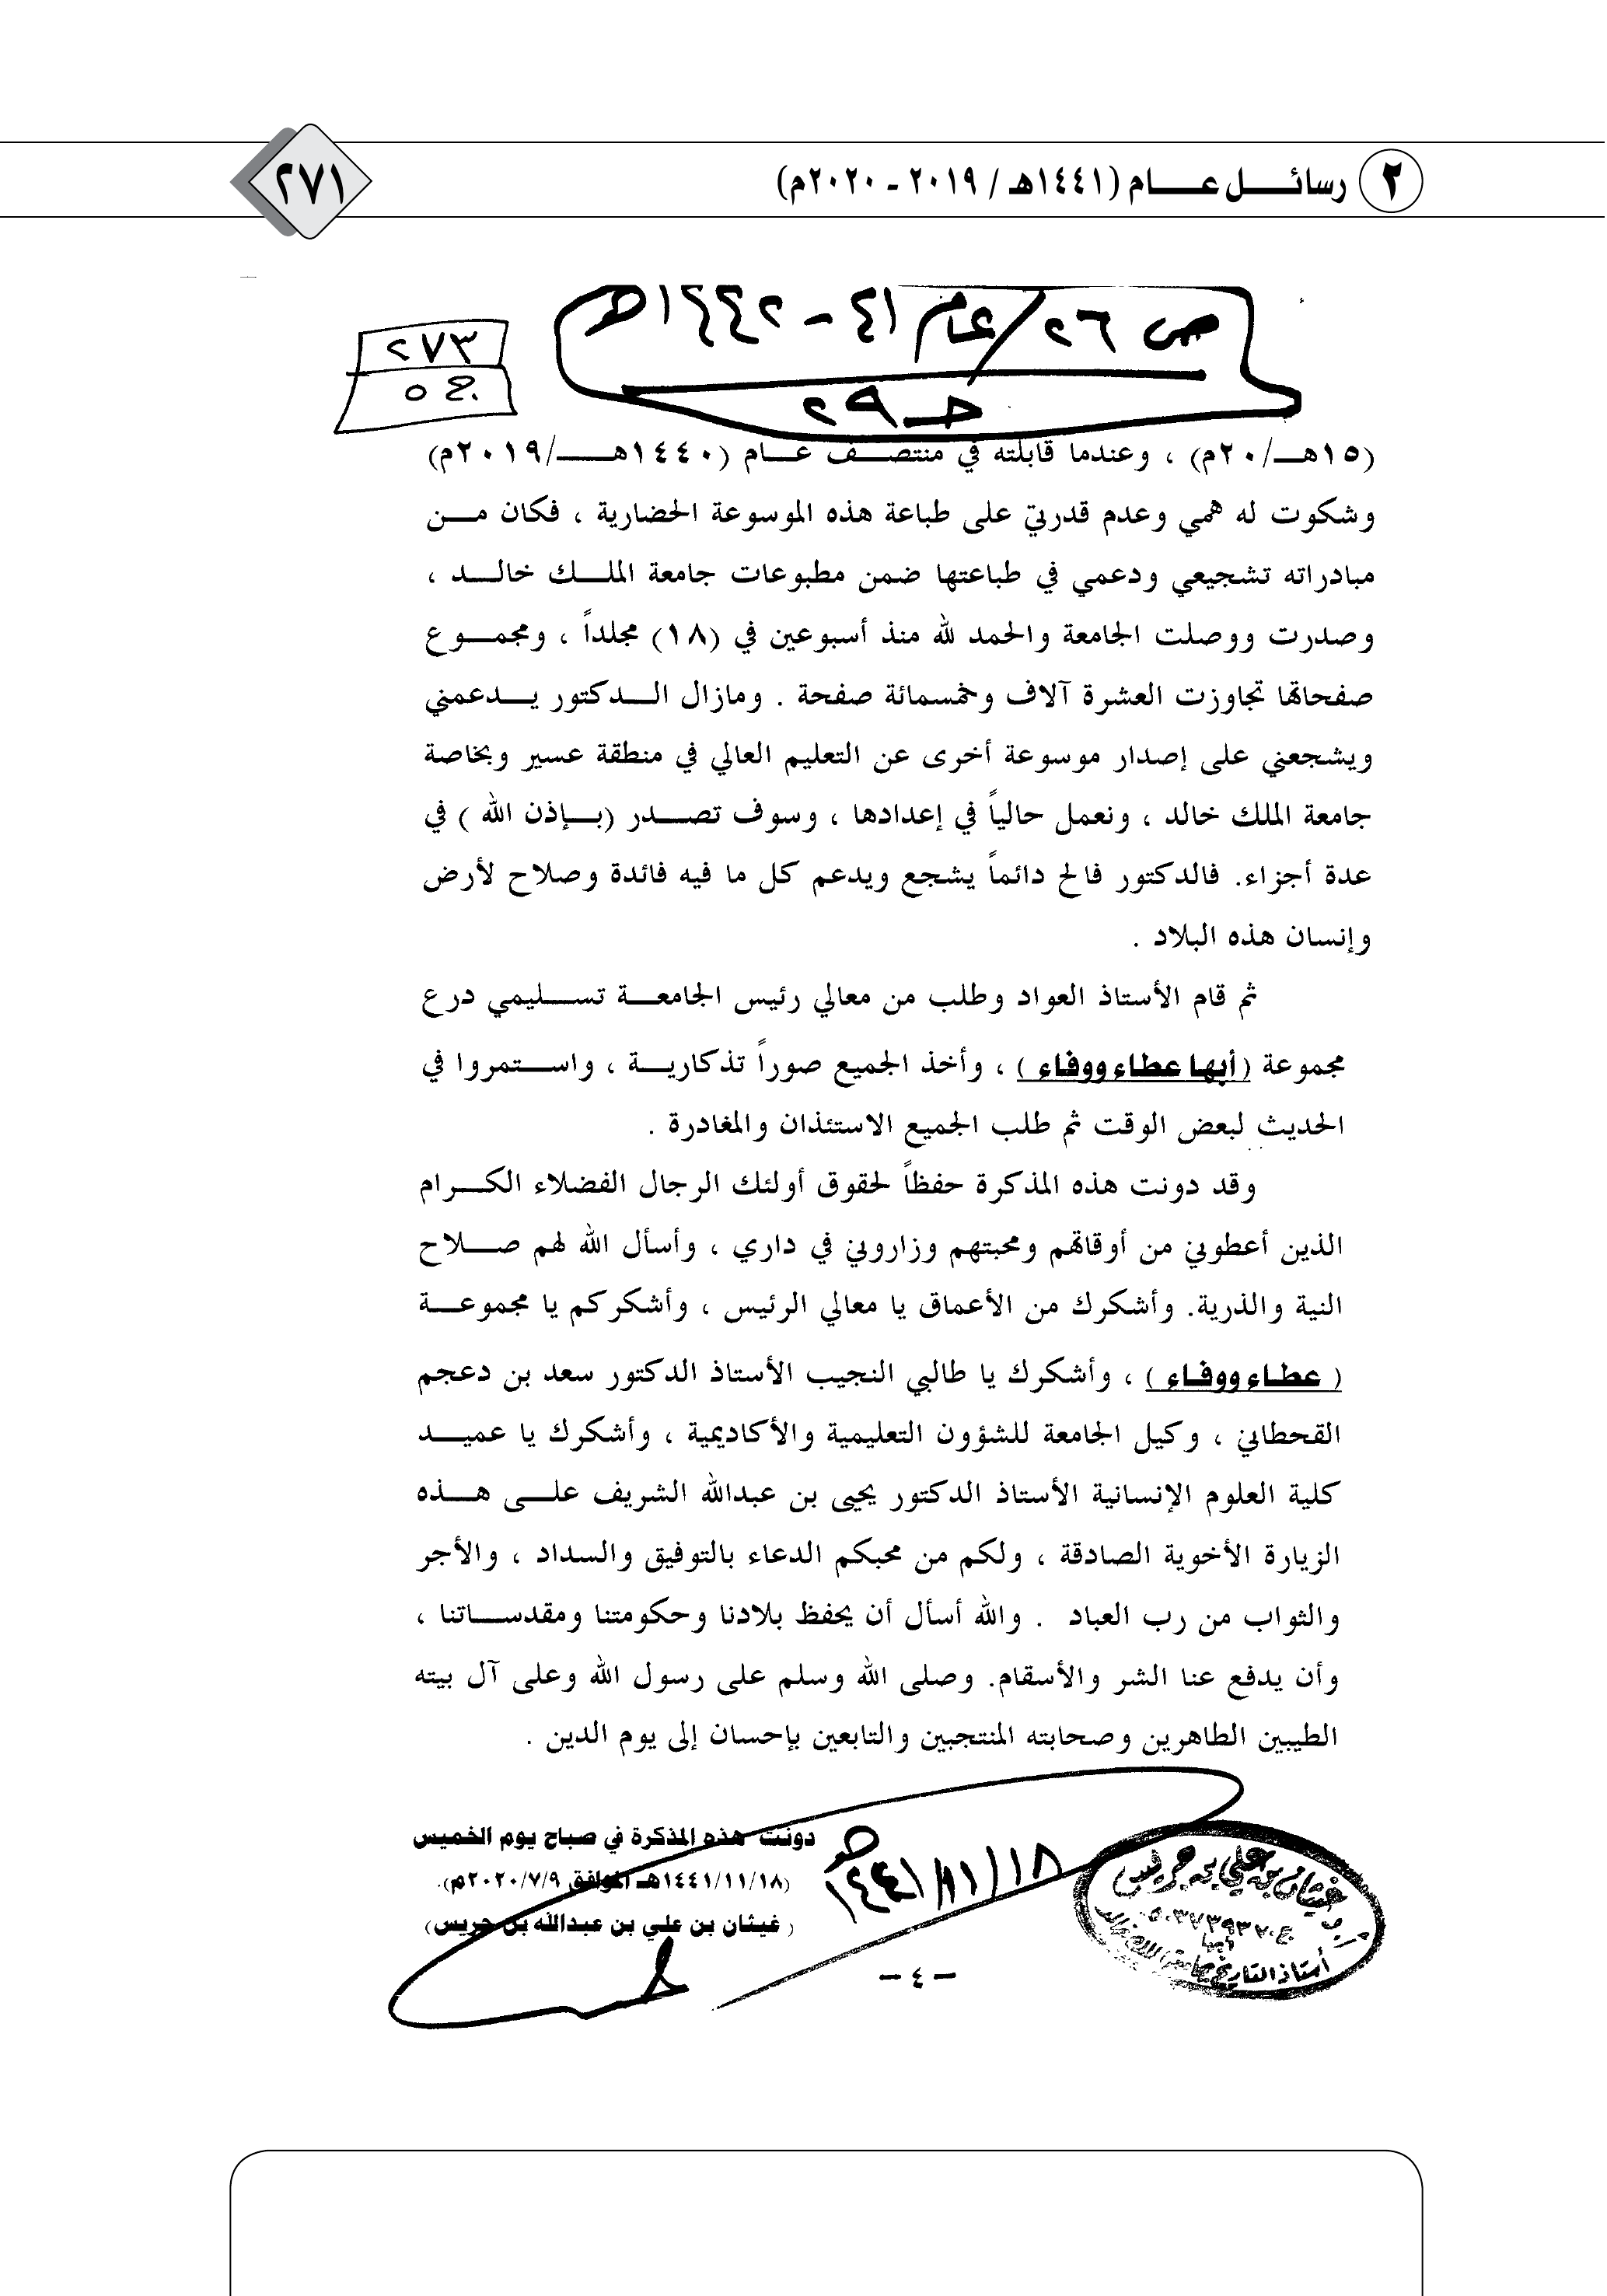 ٢ رسائل عام (١٤٤١هـ / ٢٠١٩ - ٢٠٢٠م)
٢٧١
ص ٢٦/عام ٤١ - ١٤٤٢هـ
حـ ٢٩
٢٧٣
(١٥هـ/٢٠م) ، وعندما قابلته في منتصف عام (١٤٤٠هـ/٢٠١٩م)
وشكوت له همي وعدم قدرتي على طباعة هذه الموسوعة الحضارية ، فكان من
مبادراته تشجيعي ودعمي في طباعتها ضمن مطبوعات جامعة الملك خالد ،
وصدرت ووصلت الجامعة والحمد لله منذ أسبوعين في (١٨) مجلداً ، ومجموع
صفحاتها تجاوزت العشرة آلاف وخمسمائة صفحة . ومازال الدكتور يدعمني
ويشجعني على إصدار موسوعة أخرى عن التعليم العالي في منطقة عسير وبخاصة
جامعة الملك خالد ، ونعمل حالياً في إعدادها ، وسوف تصدر (بإذن الله ) في
عدة أجزاء. فالدكتور فالح دائماً يشجع ويدعم كل ما فيه فائدة وصلاح لأرض
وإنسان هذه البلاد .
ثم قام الأستاذ العواد وطلب من معالي رئيس الجامعة تسليمي درع
مجموعة (أبها عطاء ووفاء ) ، وأخذ الجميع صوراً تذكارية ، واستمروا في
الحديث لبعض الوقت ثم طلب الجميع الاستئذان والمغادرة .
وقد دونت هذه المذكرة حفظاً لحقوق أولئك الرجال الفضلاء الكرام
الذين أعطوني من أوقاتهم ومحبتهم وزاروني في داري ، وأسأل الله لهم صلاح
النية والذرية. وأشكرك من الأعماق يا معالي الرئيس ، وأشكركم يا مجموعة
( عطاء ووفاء ) ، وأشكرك يا طالبي النجيب الأستاذ الدكتور سعد بن دعجم
القحطاني ، وكيل الجامعة للشؤون التعليمية والأكاديمية ، وأشكرك يا عميد
كلية العلوم الإنسانية الأستاذ الدكتور يحيى بن عبدالله الشريف على هذه
الزيارة الأخوية الصادقة ، ولكم من محبكم الدعاء بالتوفيق والسداد ، والأجر
والثواب من رب العباد . والله أسأل أن يحفظ بلادنا وحكومتنا ومقدساتنا ،
وأن يدفع عنا الشر والأسقام. وصلى الله وسلم على رسول الله وعلى آل بيته
الطيبين الطاهرين وصحابته المنتجبين والتابعين بإحسان إلى يوم الدين .
دونت هذه المذكرة في صباح يوم الخميس
(١٤٤١/١١/١٨هـ الموافق ٢٠٢٠/٧/٩م).
( غيثان بن علي بن عبدالله بن جريس)
١٤٤١/١١/١٨هـ
غيثان بن علي بن جريس
أبها
أستاذ التاريخ بجامعة الملك خالد
- ٤ -